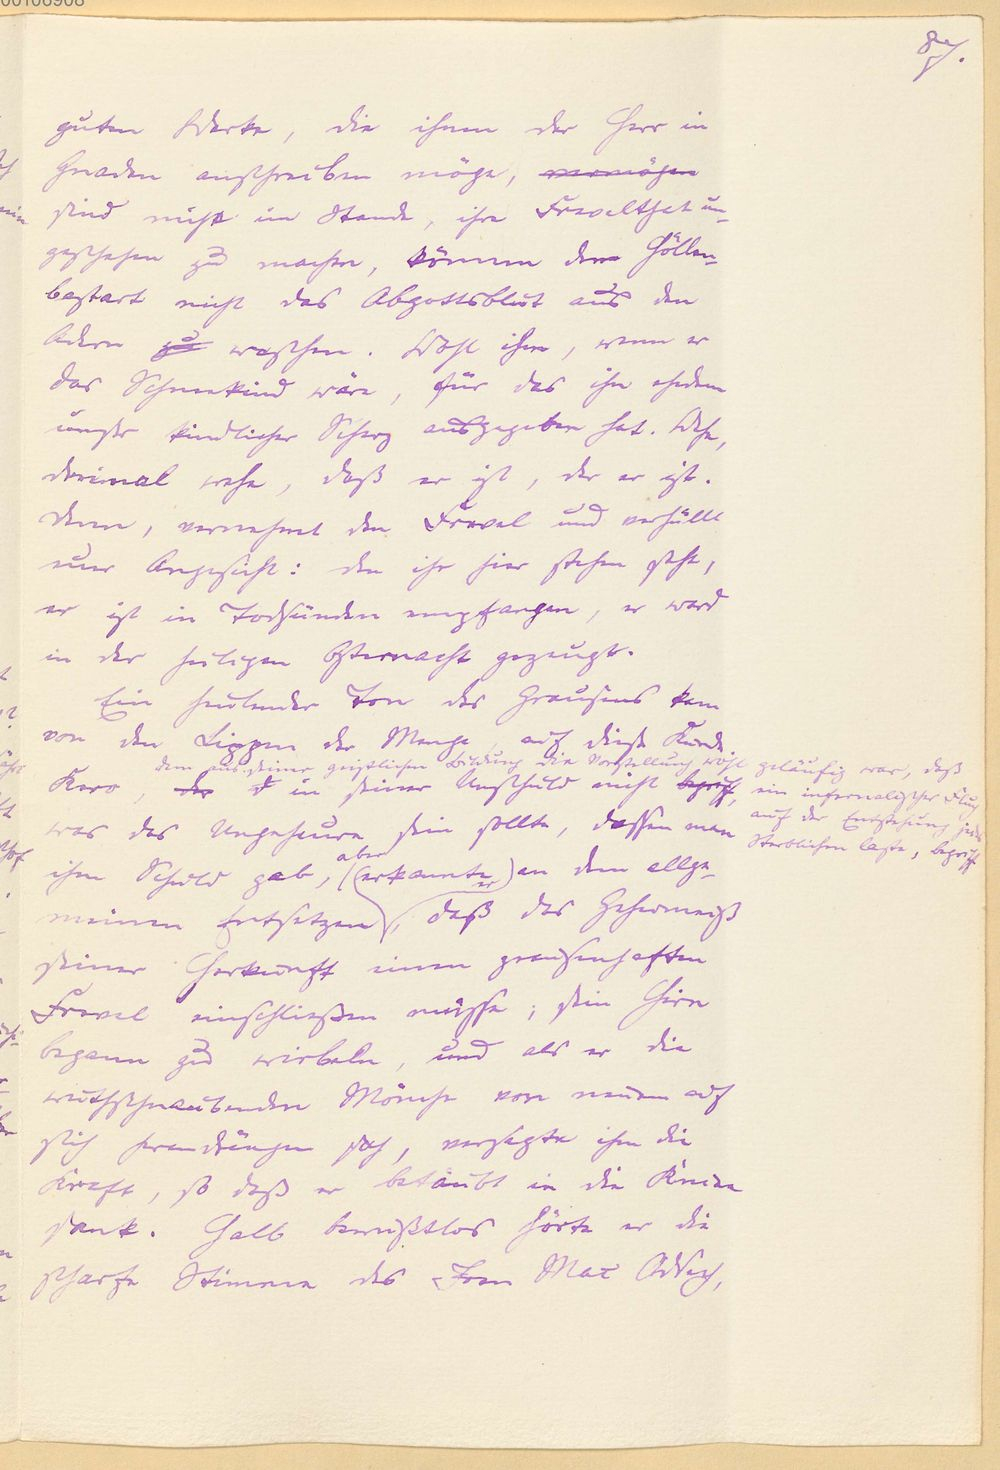 00106908
87.
guten Werke, die ihnen der Herr in
Gnaden anschreiben möge, vermögen
sind nicht im Stande, ihre Frevelthat un-
geschehen zu machen, können dem Höllen-
bastart nicht das Abgottsblut aus den
Adern zu waschen. Wohl ihm, wenn er
das Schneekind wäre, für das ihn ehedem
unser kindlicher Scherz ausgegeben hat. Wehe,
dreimal wehe, daß er ist, der er ist.
Denn, vernehmet den Frevel und verhüllt
euer Angesicht: den ihr hier stehen seht,
er ist in Todsünden empfangen, er ward
in der heiligen Osternacht gezeugt.
Ein heulender Ton des Grausens kam
von den Lippen der Menge auf diese Kunde.
dem aus seiner geistlichen Bildung die Vorstellung wohl geläufig war, daß
ein infernalischer Fluch
auf der Entstehung jedes
Sterblichen laste, begriff
Karo, der in seiner Unschuld nicht begriff,
was das Ungeheure sein sollte, dessen man
ihm Schuld gab, (aber erkannte er) an dem allge-
meinen Entsetzen, daß das Geheimniß
seiner Herkunft einen grausenhaften
Frevel einschließen müsse; sein Hirn
begann zu wirbeln, und als er die
wuthschnaubenden Mönche von neuem auf
sich herandrängen sah, versagte ihm die
Kraft, so daß er betäubt in die Kniee
sank. Halb bewußtlos hörte er die
scharfe Stimme des